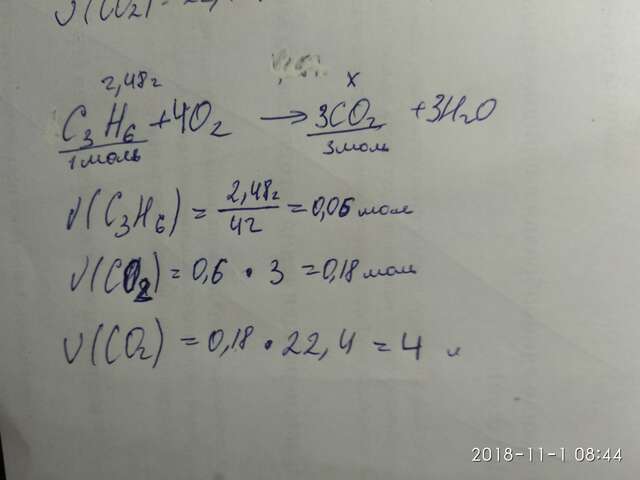 ν(CO₂) = 22,4
2,48 г
x
C₃H₆ + 4O₂ → 3CO₂ + 3H₂O
1 моль
3 моль
ν(C₃H₆) = 2,48г / 42 = 0,06 моль
ν(CO₂) = 0,6 · 3 = 0,18 моль
υ(CO₂) = 0,18 · 22,4 = 4 л
2018-11-1 08:44